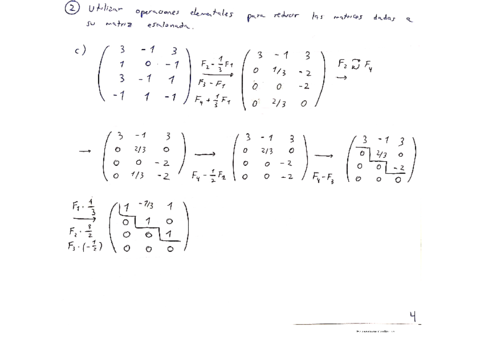 ② Utilizar operaciones elementales para reducir las matrices dadas a
su matriz escalonada.
c) ( 3 -1 3 ; 1 0 -1 ; 3 -1 1 ; -1 1 -1 ) F₂-1/3F₁ F₃-F₁ F₄+1/3F₁ → ( 3 -1 3 ; 0 1/3 -2 ; 0 0 -2 ; 0 2/3 0 ) F₂ ⇄ F₄ →
→ ( 3 -1 3 ; 0 2/3 0 ; 0 0 -2 ; 0 1/3 -2 ) → F₄-1/2F₂ ( 3 -1 3 ; 0 2/3 0 ; 0 0 -2 ; 0 0 -2 ) → F₄-F₃ ( 3 -1 3 ; 0 2/3 0 ; 0 0 -2 ; 0 0 0 )
F₁·1/3 F₂·3/2 F₃·(-1/2) → ( 1 -1/3 1 ; 0 1 0 ; 0 0 1 ; 0 0 0 )
4